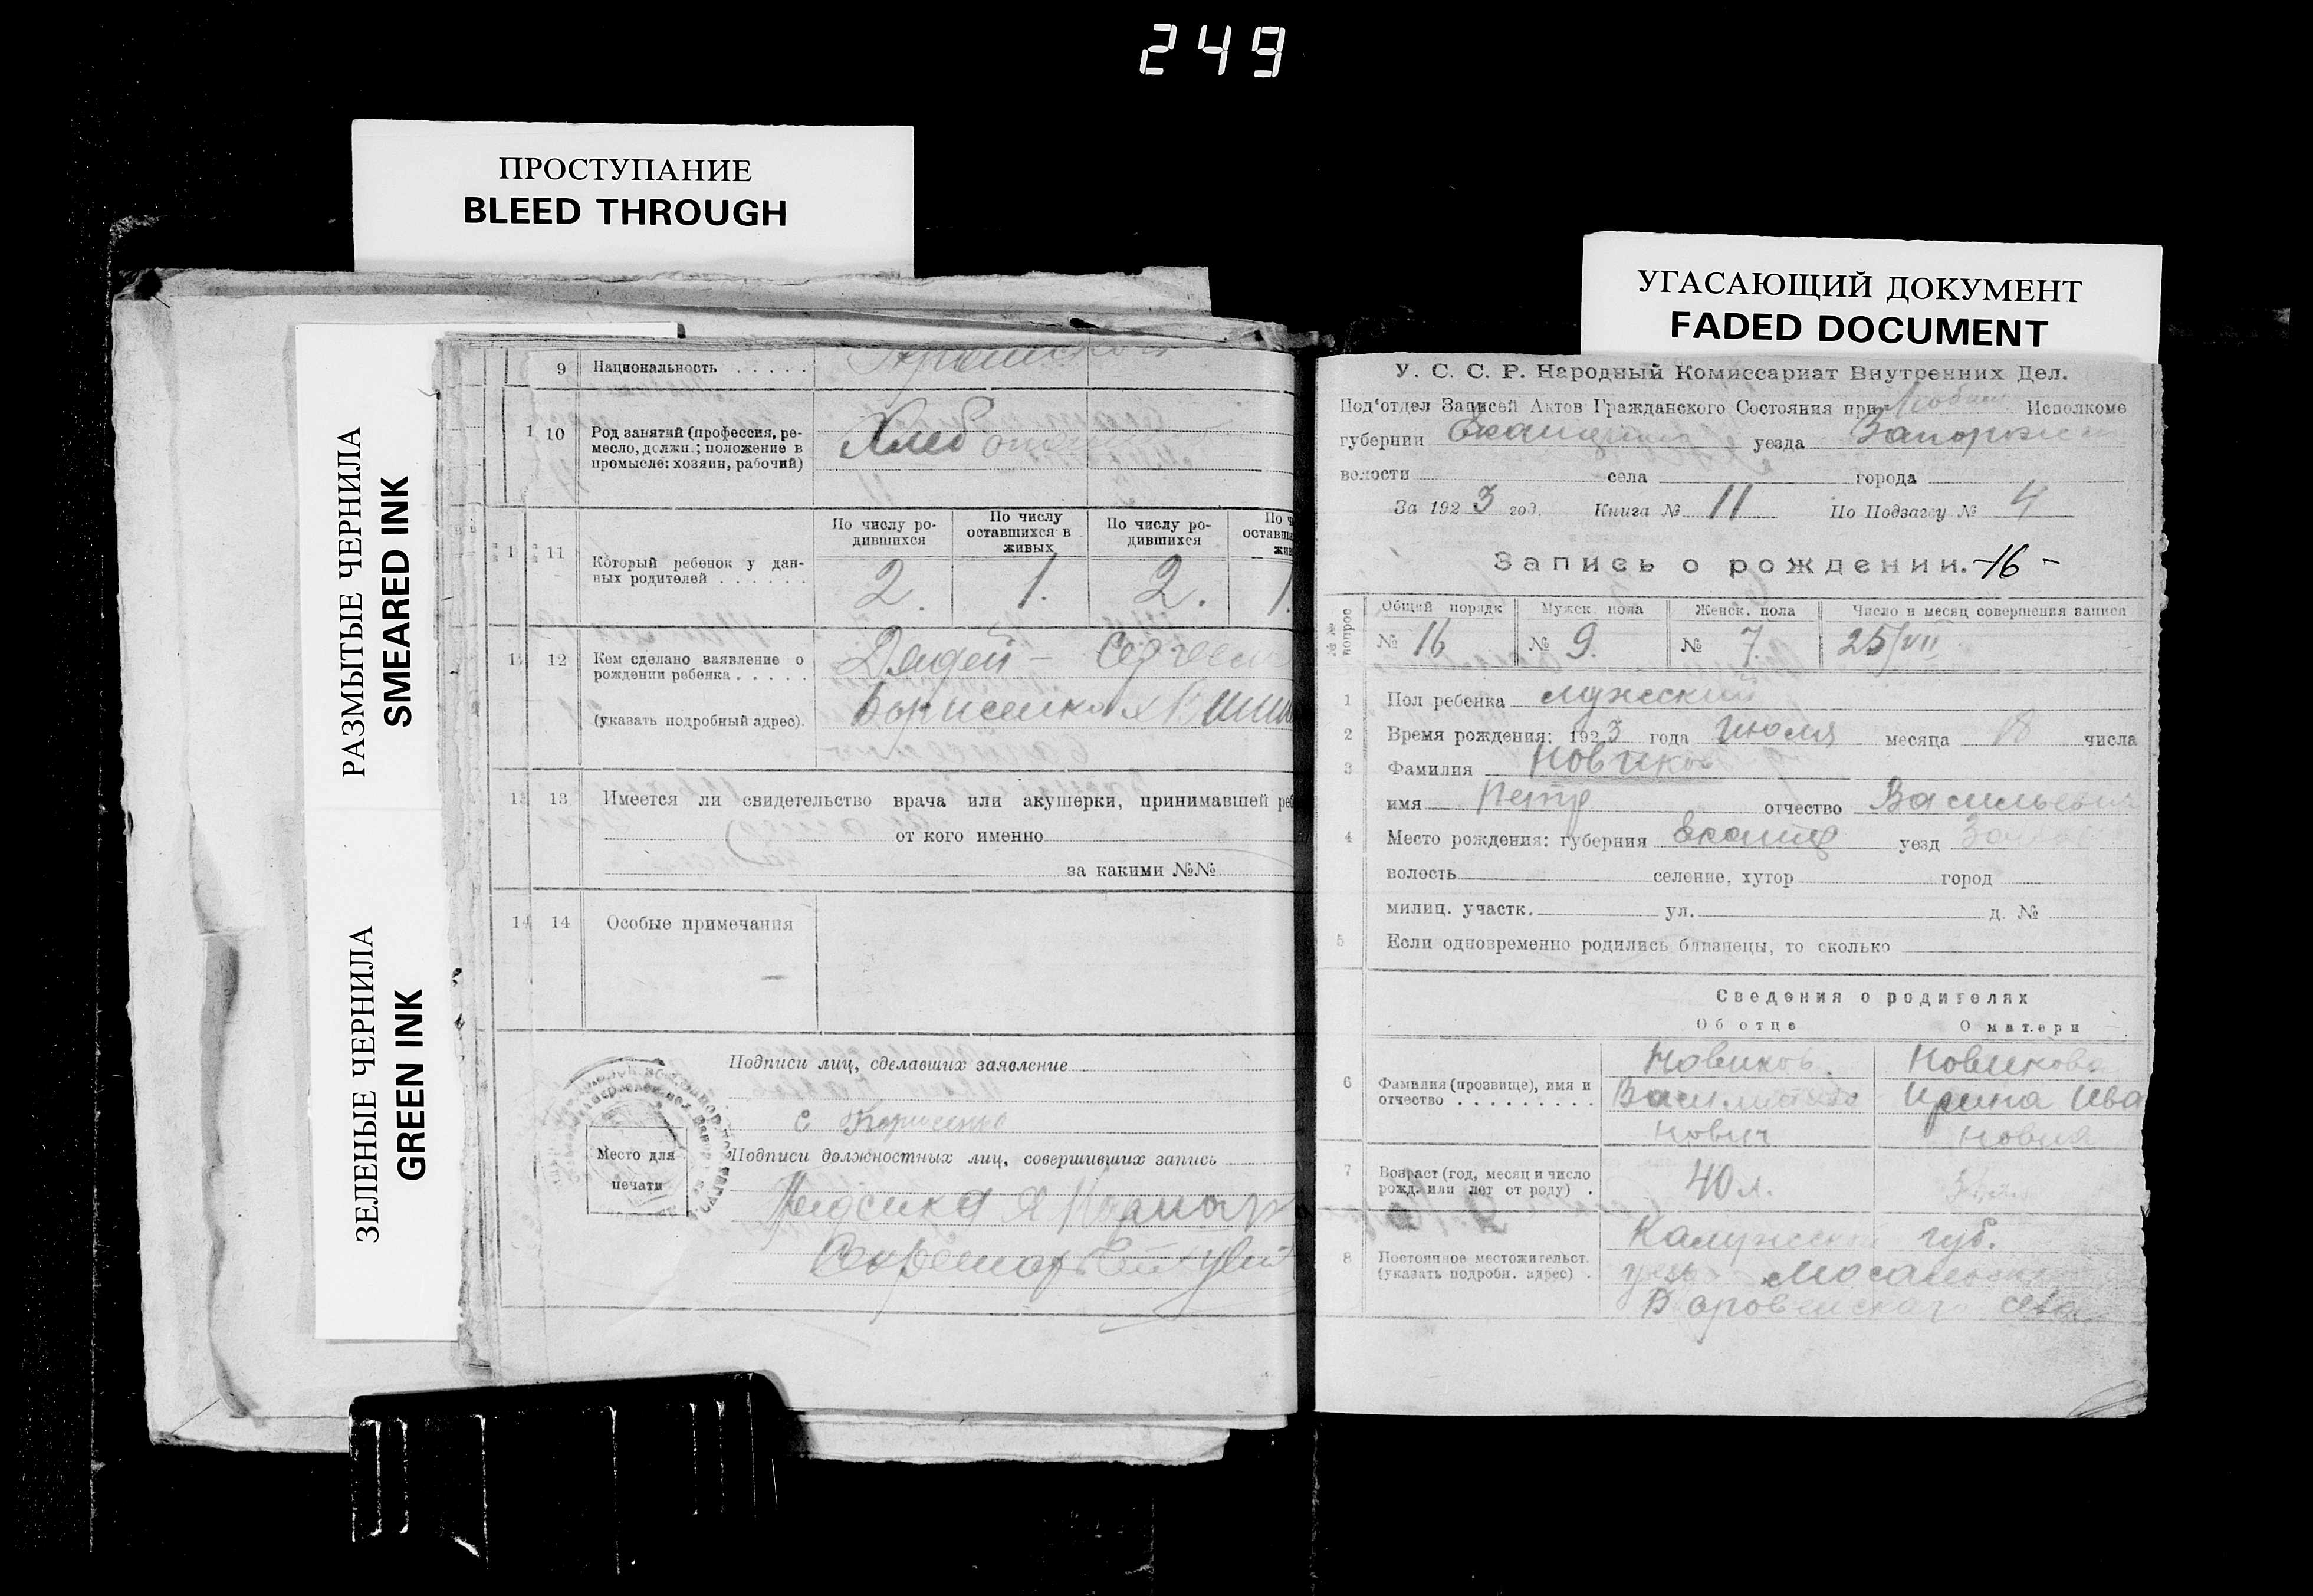 249
ПРОСТУПАНИЕ
BLEED THROUGH
УГАСАЮЩИЙ ДОКУМЕНТ
FADED DOCUMENT
РАЗМЫТЫЕ ЧЕРНИЛА
SMEARED INK
ЗЕЛЕНЫЕ ЧЕРНИЛА
GREEN INK
9 Национальность
10 Род занятий (профессия, ре-
месло, должн.; положение в
промысле: хозяин, рабочий)
11 Который ребенок у дан-
ных родителей
По числу ро-
дившихся
По числу
оставшихся в
живых
По числу ро-
дившихся
2. 1. 2. 1.
12 Кем сделано заявление о
рождении ребенка
(указать подробный адрес).
Дядей -
13 Имеется ли свидетельство врача или акушерки, принимавшей
от кого именно
за какими №№
14 14 Особые примечания
Подписи лиц, сделавших заявление
с Борисенко
Подписи должностных лиц, совершивших запись
Место для
печати
У. С. С. Р. Народный Комиссариат Внутренних Дел.
Под'отдел Записей Актов Гражданского Состояния при Исполкоме
губернии уезда
волости села города
За 1923 год. Книга № 11 По Подзагсу № 4
Запись о рождении. -16-
№№ вопрос
Общий порядк Мужск. пола Женск. пола Число и месяц совершения записи
№ 16 № 9. № 7. 25/VII
1 Пол ребенка мужский
2 Время рождения: 1923 года Июля месяца 18 числа
3 Фамилия Новиков
имя Петр отчество Васильевич
4 Место рождения: губерния Екатер уезд
волость селение, хутор город
милиц. участк. ул. д. №
5 Если одновременно родились близнецы, то сколько
Сведения о родителях
Об отце О матери
6 Фамилия (прозвище), имя и
отчество
Новиков
нович
Новикова
Ирина Ива
новна
7 Возраст (год, месяц и число
рожд. или лет от роду)
40 л.
8 Постоянное местожительст.
(указать подробн. адрес)
Калужской губ.